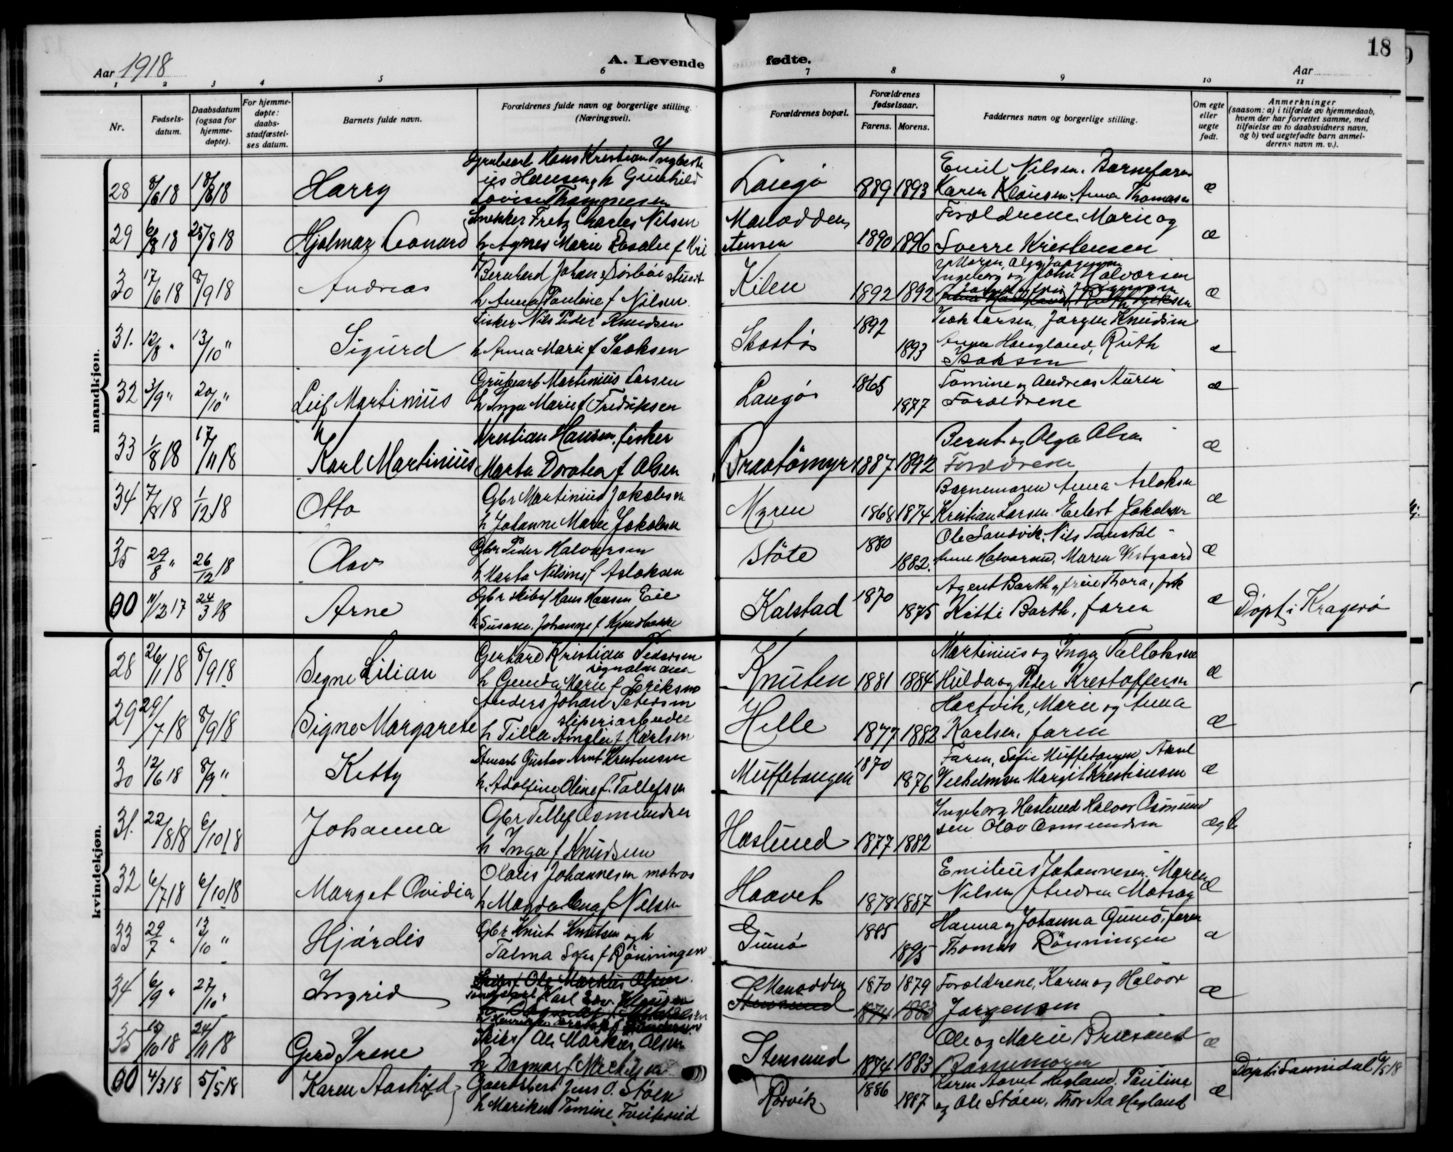 18
Aar 1918
A. Levende fødte.
Aar
1 2 3 4 5 6 7 8 9 10 11
Nr.
Fødsels-
datum.
Daabsdatum
(ogsaa for
hjemme-
døpte).
For hjemme-
døpte:
daabs-
stadfæstel-
ses datum.
Barnets fulde navn.
Forældrenes fulde navn og borgerlige stilling.
(Næringsvei).
Forældrenes bopæl.
Forældrenes
fødselsaar.
Farens. Morens.
Faddernes navn og borgerlige stilling.
Om egte
eller
uegte
født.
Anmerkninger
(saasom: a) i tilfælde av hjemmedaab,
hvem der har forrettet samme, med
tilføielse av to daabsvidners navn,
og b) ved uegtefødte barn anmel-
derens navn m. v.).
mandkjøn.
Grubearb Hans Kristian Ingbart
Emil Nilsen, Barnefaren
28 18 18 Harry Hansen, h Gunhild Langø 1889 1893 Karen Klausen, Anna Thomasen æ
Lovise Thommesen
Snekker Fretz Charles Nilsen
Forældrene Marie og
29 6/8 18 25/8 18 Hjalmar Leonard h Agnes Marie Rosalie f 1890 1896 Sverre Kristensen æ
Bernhard Johan
Ingeborg og John Halvorsen
30 17/6 18 8/9 18 Andreas h Anna Pauline f Nilsen Kilen 1892 1892 æ
Fisker Nils Peder Knudsen
1892 Isak Larsen, Jørgen Knudsen
31. 12/8 " 13/10 " Sigurd h Anna Marie f Isaksen 1893 Anna Haugland, Ruth æ
Isaksen
Grubearb Martinius Larsen
1865 Tomine og Andreas
32 3/9 " 20/10 " Leif Martinius h Inga Marie f Fredriksen Langø 1877 Forældrene æ
Kristian Hansen, fisker
Bernt og Olga Olsen
33 1/8 18 17/11 18 Karl Martinius Marta Dorothea f Olsen 1887 1892 Forældrene æ
Gbr Martinius Jakobsen
Barnemoren Anna Aslaksen
34 7/8 18 1/12 18 Otto h Johanne Marie Jakobsen Myren 1868 1874 Kristian Larsen Edart Jakobsen æ
Gbr Peder Halvorsen
1880 Ole Sandvik, Nils
35 29/8 " 26/12 18 Olav h Marta f Aslaksen Støte 1882 Anne Halvorsen, Maren Vestgaard æ
Gbr skibsf Hans Hansen Eie
1870 Agent Barth, frue Thora, frk
00 11/12 17 24/3 18 Arne h Susanne Johanne f Kalstad 1875 Kitti Barth, faren æ Døpt i Kragerø
kvindekjøn.
Gerhard Kristian Pedersen
signalmann
Martinius og Inga Tellefsen
28 26/11 18 8/9 18 Signe Lilian h Gerda Marie f Eriksen Knuten 1881 1884 Hulda og Peder Kristoffersen æ
Anders Johan Petersen
sliperiarbeider
Hartvik, Marie og Anna
29 29/7 18 8/9 18 Signe Margarete h Tilla Amalie f Karlsen Helle 1877 1882 Karlsen, faren æ
Gustav Arnt Kristensen
1870 Faren, Sofie Muffetangen, Aksel
30 12/6 18 8/9 " Kitty h. Adolfine Oline f. Tollefsen Muffetangen 1876 Vilhelmsen Margit Kristiansen æ
Gbr Tellef Osmundsen
Ingeborg Haslund Halvor Osmund
31. 22/8 18 6/10 18 Johanna h Inga f Knudsen Haslund 1877 1882 sen Olav Osmundsen
Olaus Johannesen matros
Emilius Johannesen, Maren
32 6/7 18 6/10 18 Marget Ovidia h Magdalena f Nilsen Haavet 1878 1887 Nilsen æ
Gbr Knut Knutsen og h
1885 Hanna og Johanna Gumø, faren
33 29/7 " 13/10 " Hjørdis Talma Sofie f Rønningen Gumø 1895 Thomas Rønningen æ
Ole Markus Olsen
Menodden 1870 1879 Forældrene, Karen og Halvor
34 6/9 " 27/10 " Ingrid Karl Stensund 1874 1883 Jørgensen æ
Ole Markus Olsen
Ole og Marie
35 18 24/11 18 Gerd Irene h Dagmar f Stensund 1874 1883 Barnemoren æ
Jens O. Støen
Karen Aavet Hegland, Pauline
00 4/3 18 5/5 18 Karen Aashild h Mariken Tomine Rørvik 1886 1887 og Ole Støen, Thor Aa Hegland æ Døpt i Sannidal 18